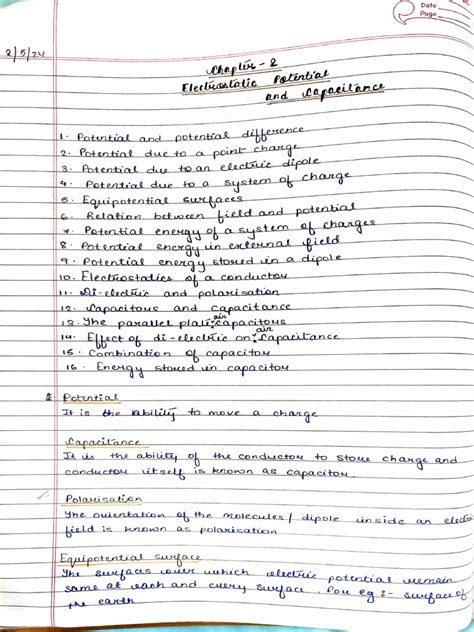 Date
Page
2/5/24
Chapter - 2
Electrostatic Potential
and Capacitance
1. Potential and potential difference
2. Potential due to a point charge
3. Potential due to an electric dipole
4. Potential due to a system of charge
5. Equipotential surfaces
6. Relation between field and potential
7. Potential energy of a system of charges
8. Potential energy in external field
9. Potential energy stored in a dipole
10. Electrostatics of a conductor
11. Di-electric and polarisation
12. Capacitous and capacitance
13. The parallel plate air capacitous
14. Effect of di-electric on air Capacitance
15. Combination of capacitor
16. Energy stored in capacitor
Potential
It is the ability to move a charge
Capacitance
It is the ability of the conductor to store charge and
conductor itself is known as capacitor
Polarisation
The orientation of the molecules / dipole inside an electric
field is known as polarisation
Equipotential surface
The surfaces over which electric potential remain
same at each and every surface. For eg:- surface of
the earth